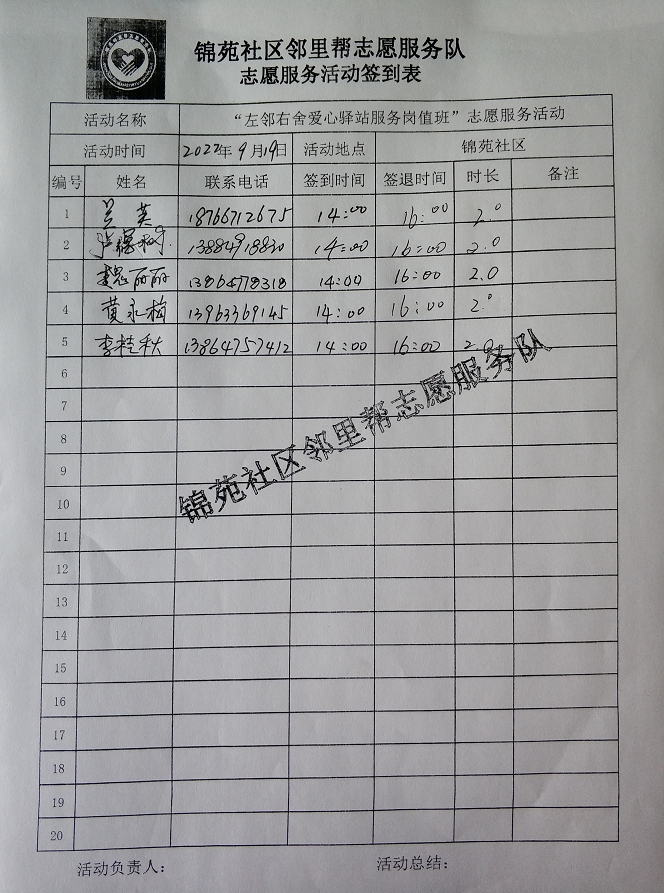 锦苑社区邻里帮志愿服务队
志愿服务活动签到表
活动名称 “左邻右舍爱心驿站服务岗值班”志愿服务活动
活动时间 2022年9月19日 活动地点 锦苑社区
编号 姓名 联系电话 签到时间 签退时间 时长 备注
1 兰英 18766712675 14:00 16:00 2.0
2 13884918830 14:00 16:00 2.0
3 丽丽 13864778318 14:00 16:00 2.0
4 黄永梅 13963369145 14:00 16:00 2.0
5 李桂秋 13864757412 14:00 16:00 2.0
6
7
8
9
10
11
12
13
14
15
16
17
18
19
20
锦苑社区邻里帮志愿服务队
活动负责人： 活动总结：